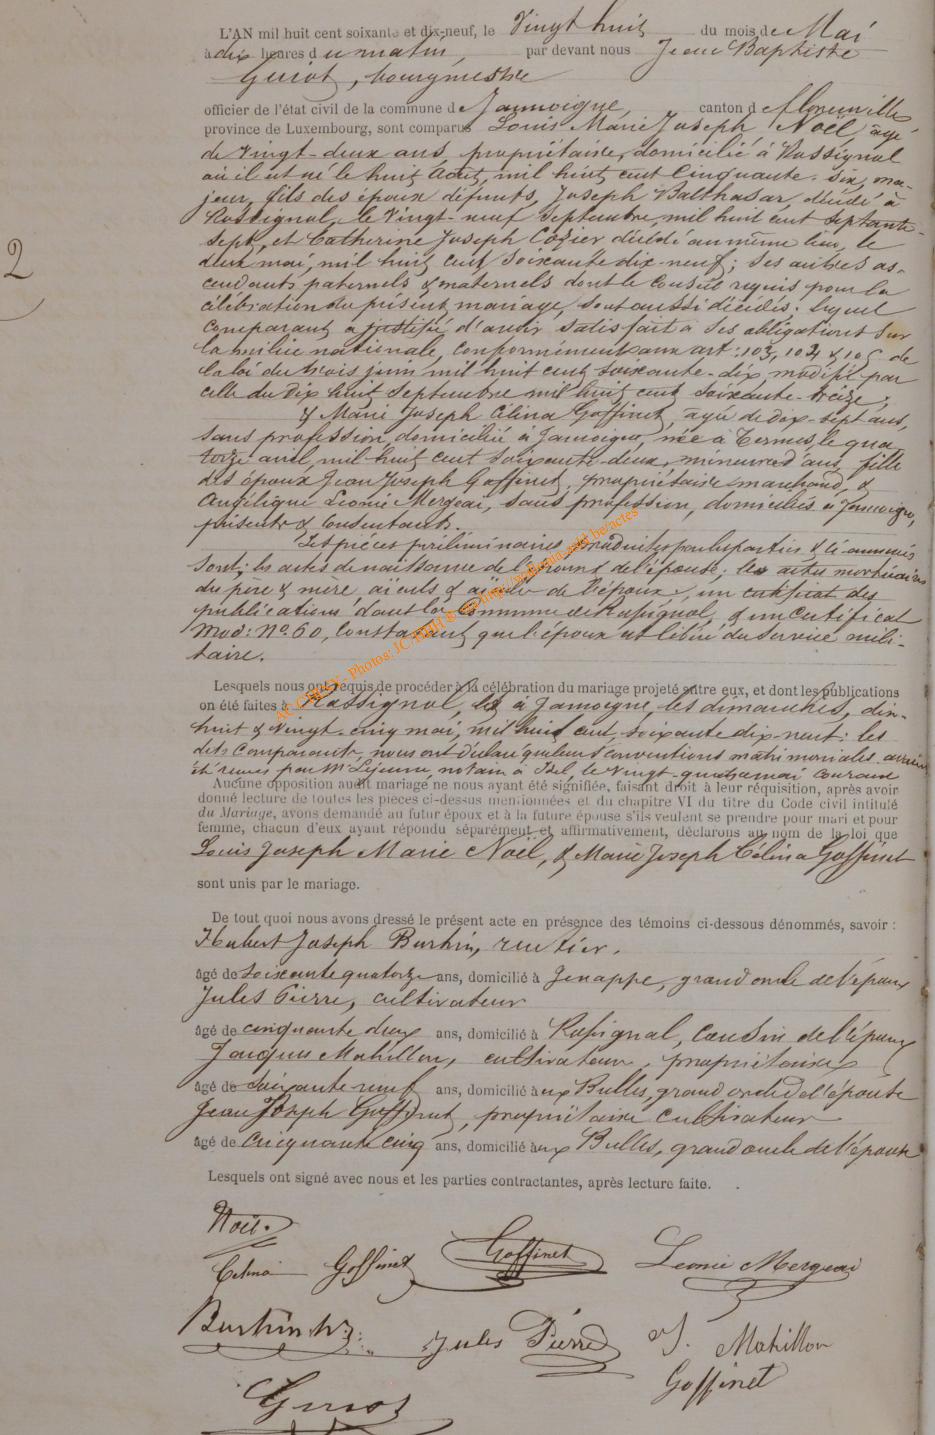 L'AN mil huit cent soixante et dix-neuf, le Vingt huit du mois de Mai
à dix heures du matin, par devant nous Jean Baptiste
Guiot, bourgmestre
officier de l'état civil de la commune de Jamoigne, canton de Florenville
province de Luxembourg, sont comparus Louis Marie Joseph Noël, âgé
de Vingt-deux ans, propriétaire, domicilié à Rossignol
où il est né le huit Août, mil huit cent cinquante-six, ma-
jeur, fils des époux défunts, Joseph Balthasar, décédé à
Rossignol, le Vingt-neuf Septembre, mil huit cent septante-
sept, et Catherine Joseph Cozier décédé au même lieu, le
deux mai, mil huit cent soixante dix-neuf; ses autres as-
cendants paternels & maternels dont le Conseil requis pour la
célébration du présent mariage, sont aussi décédés; lequel
comparant a justifié d'avoir satisfait à ses obligations sur
la milice nationale, conformément aux art: 103, 104 & 105 de
la loi du trois juin mil huit cent soixante-dix, modifié par
celle du Dix huit Septembre mil huit cent soixante-treize;
& Marie Joseph Célina Goffinet, âgée de Dix-sept ans,
sans profession, domiciliée à Jamoigne, née à Termes, le qua
torze avril, mil huit cent soixante-deux, mineure d'ans, fille
des époux Jean Joseph Goffinet, propriétaire marchand, &
Angélique Léonie Mergeai, sans profession, domiciliés à Jamoigne,
présents & Consentants.
Les pièces préliminaires produites par les parties & ci annexées
sont; les actes de naissance de l'époux & de l'épouse; les actes mortuaires
des père & mère aïeuls & aïeules de l'époux, un certificat des
publications dans la Commune de Rossignol & un certificat
Mod: No. 60, Constatant que l'époux est libéré du service mili-
taire.
Lesquels nous ont requis de procéder à la célébration du mariage projeté entre eux, et dont les publications
on été faites à Rossignol, & à Jamoigne, les dimanches, dix-
huit & Vingt-cinq mai, mil huit cent soixante dix-neuf: les
dits comparants, nous ont déclaré que leurs conventions matrimoniales avaient
été reçues par Mr Lejeune, notaire à Izel, le Vingt-quatre mai courant
Aucune opposition audit mariage ne nous ayant été signifiée, faisant droit à leur réquisition, après avoir
donné lecture de toutes les pièces ci-dessus mentionnées et du chapitre VI du titre du Code civil intitulé
du Mariage, avons demandé au futur époux et à la future épouse s'ils veulent se prendre pour mari et pour
femme, chacun d'eux ayant répondu séparément et affirmativement, déclarons au nom de la loi que
Louis Joseph Marie Noël, & Marie Joseph Célina Goffinet
sont unis par le mariage.
De tout quoi nous avons dressé le présent acte en présence des témoins ci-dessous dénommés, savoir :
Hubert Joseph Burhin, rentier,
âgé de soixante quatorze ans, domicilié à Genappe, grand oncle de l'époux
Jules Pierre, cultivateur
âgé de cinquante deux ans, domicilié à Rossignol, cousin de l'époux
Jacques Mahillon, cultivateur, propriétaire
âgé de Soixante-neuf ans, domicilié aux Bulles, grand oncle de l'épouse
Jean Joseph Goffinet, propriétaire cultivateur
âgé de Cinquante cinq ans, domicilié aux Bulles, grand oncle de l'épouse
Lesquels ont signé avec nous et les parties contractantes, après lecture faite.
Noël.
Celina Goffinet Goffinet Leonie Mergeai
Burhin hj: Jules Pierre J. Mahillon
Goffinet
Guiot
2